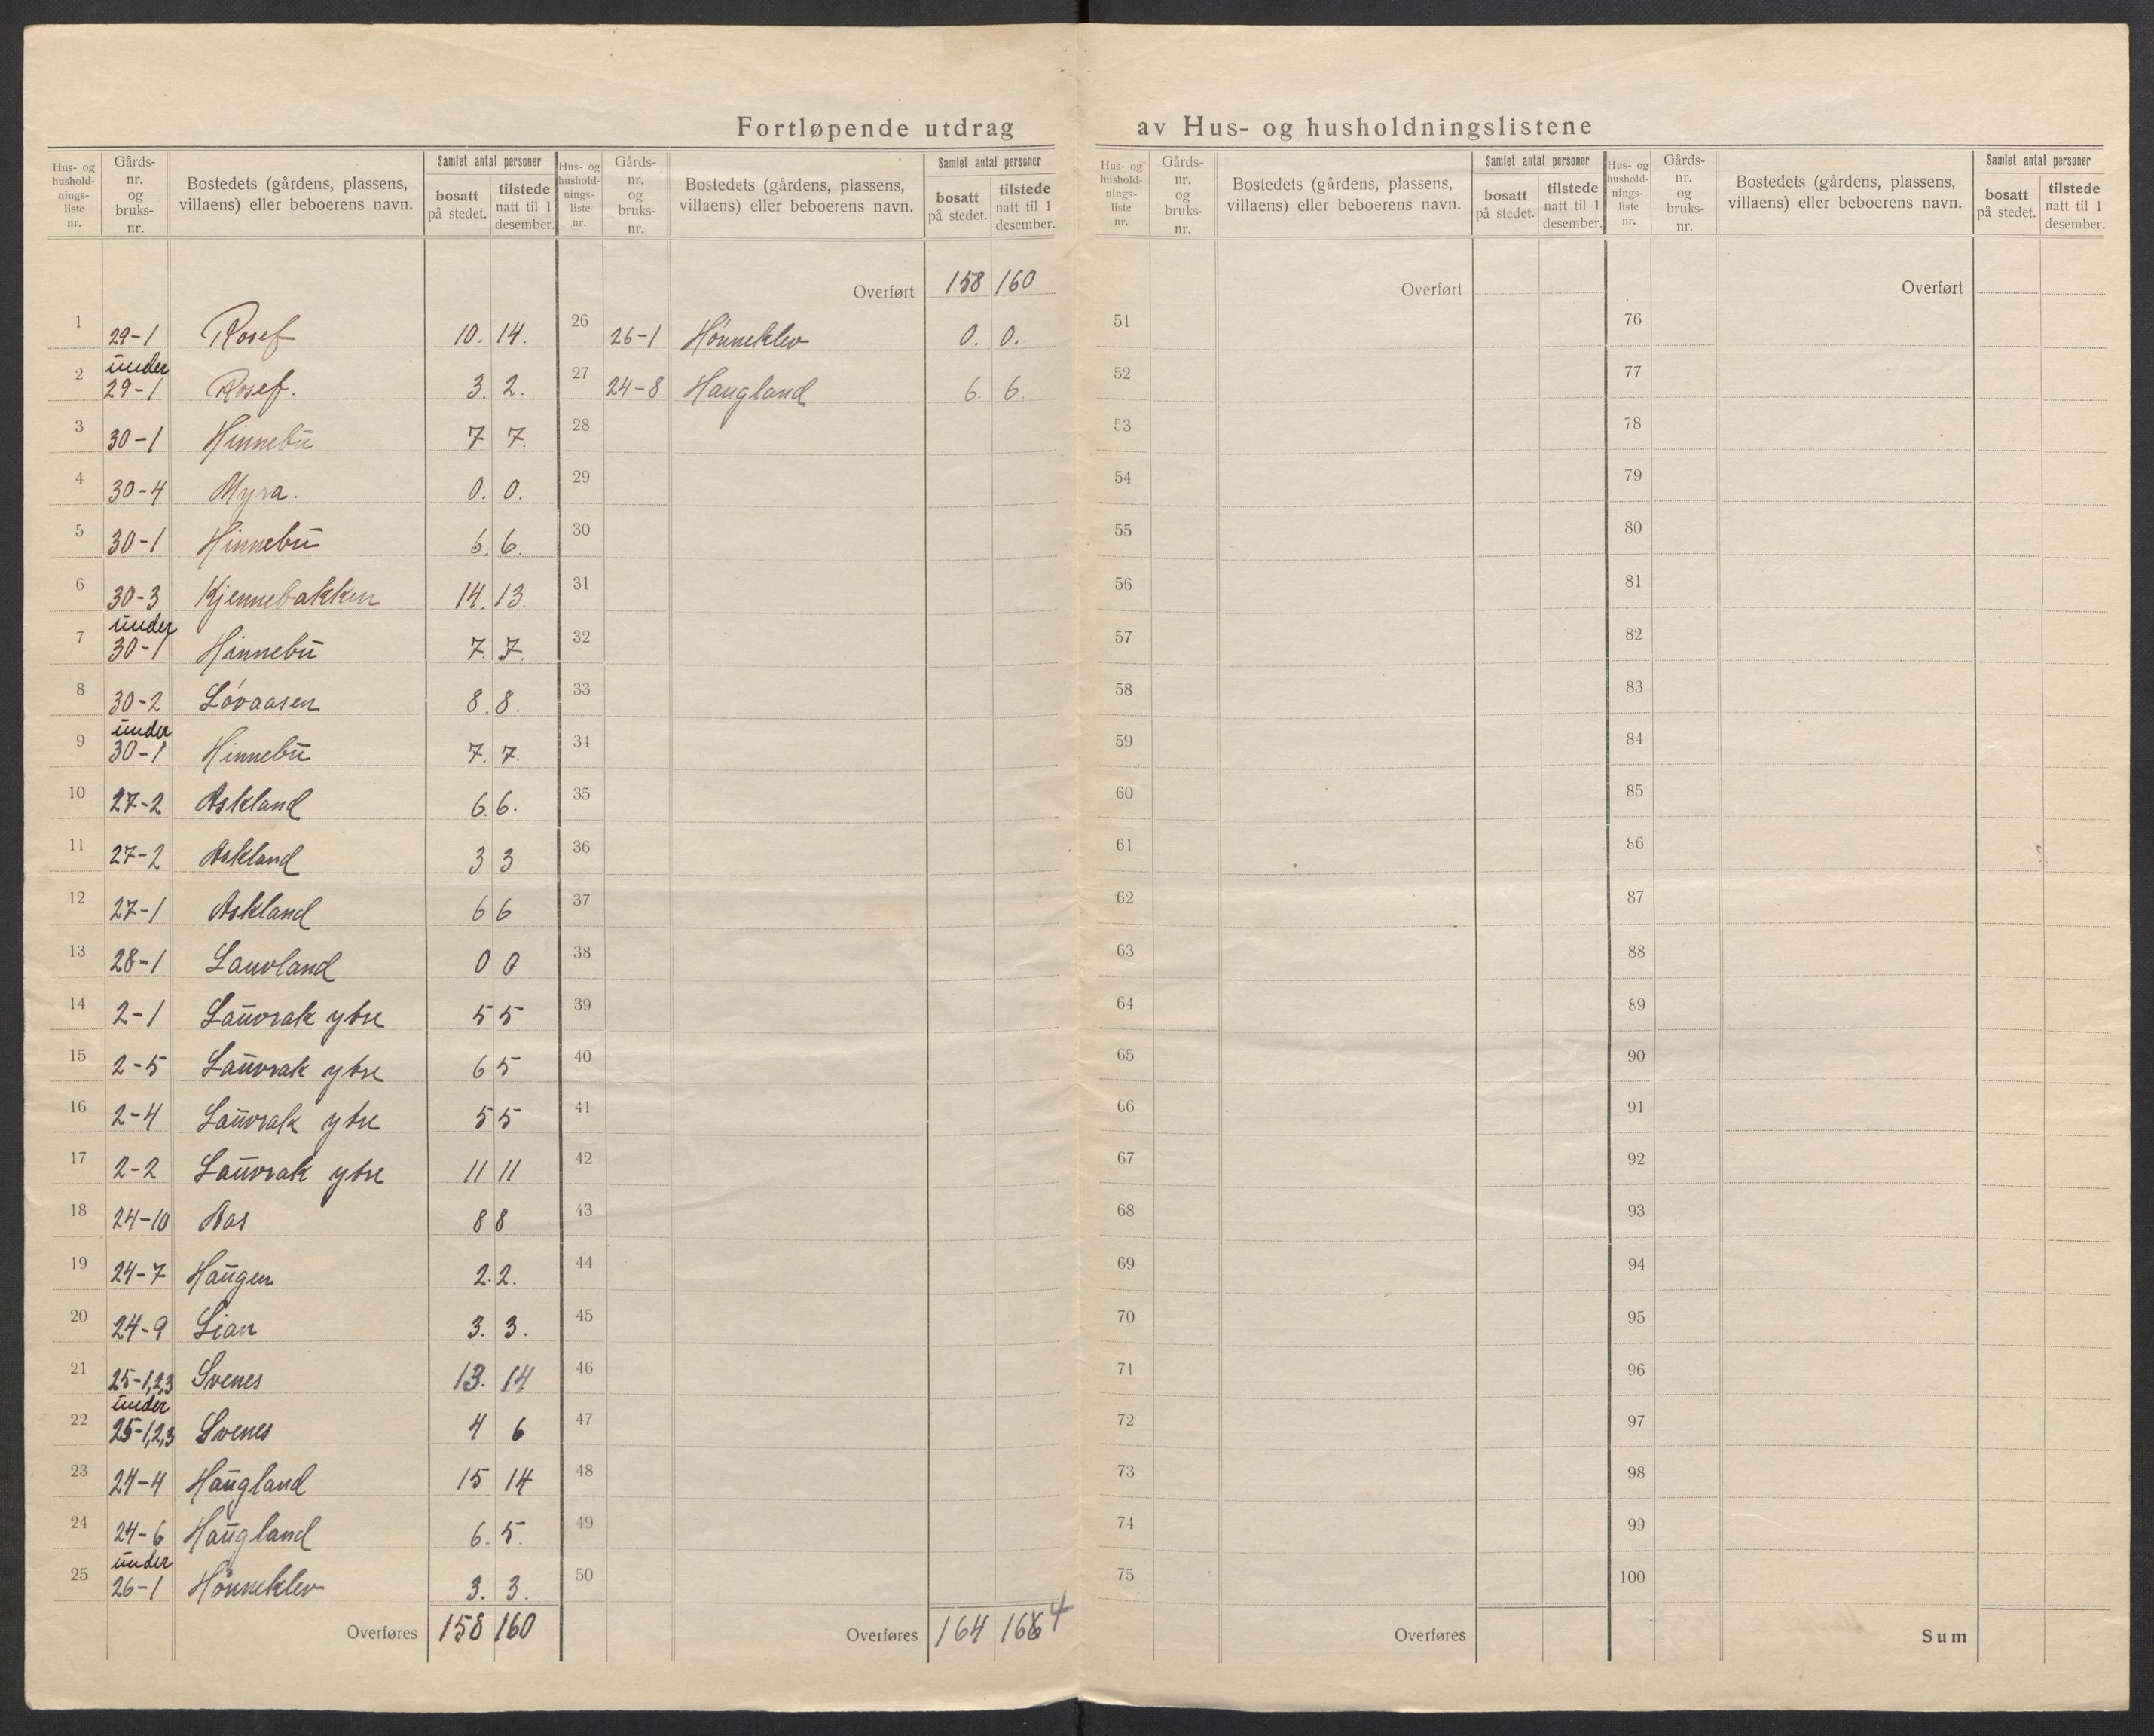 Fortløpende utdrag av Hus- og husholdningslistene
Hus- og hushold- nings- liste nr. | Gårds- nr. og bruks- nr. | Bostedets (gårdens, plassens, villaens) eller beboerens navn. | Samlet antal personer | bosatt på stedet. | tilstede natt til 1 desember.
1 29-1 Rosef 10. 14.
2 under 29-1 Rosef. 3. 2.
3 30-1 Hinnebu 7 7.
4 30-4 Myra. 0. 0.
5 30-1 Hinnebu 6. 6.
6 30-3 Kjennebakken 14. 13.
7 under 30-1 Hinnebu 7. 7.
8 30-2 Løvaasen 8. 8.
9 under 30-1 Hinnebu 7. 7.
10 27-2 Askland 6. 6.
11 27-2 Askland 3 3
12 27-1 Askland 6 6
13 28-1 Lauvland 0 0
14 2-1 Lauvrak ytre 5 5
15 2-5 Lauvrak ytre 6 5
16 2-4 Lauvrak ytre 5 5
17 2-2 Lauvrak ytre 11 11
18 24-10 Aas 8 8
19 24-7 Haugen 2. 2.
20 24-9 Lian 3. 3.
21 25-1,2,3 Svenes 13. 14
22 under 25-1,2,3 Svenes 4 6
23 24-4 Haugland 15 14
24 24-6 Haugland 6. 5.
25 under 26-1 Hønneklev 3. 3.
Overføres 158 160
Hus- og hushold- nings- liste nr. | Gårds- nr. og bruks- nr. | Bostedets (gårdens, plassens, villaens) eller beboerens navn. | Samlet antal personer | bosatt på stedet. | tilstede natt til 1 desember.
Overført 158 160
26 26-1 Hønneklev 0. 0.
27 24-8 Haugland 6. 6.
28
29
30
31
32
33
34
35
36
37
38
39
40
41
42
43
44
45
46
47
48
49
50
Overføres 164 166 4
Hus- og hushold- nings- liste nr. | Gårds- nr. og bruks- nr. | Bostedets (gårdens, plassens, villaens) eller beboerens navn. | Samlet antal personer | bosatt på stedet. | tilstede natt til 1 desember.
Overført
51
52
53
54
55
56
57
58
59
60
61
62
63
64
65
66
67
68
69
70
71
72
73
74
75
Overføres
Hus- og hushold- nings- liste nr. | Gårds- nr. og bruks- nr. | Bostedets (gårdens, plassens, villaens) eller beboerens navn. | Samlet antal personer | bosatt på stedet. | tilstede natt til 1 desember.
Overført
76
77
78
79
80
81
82
83
84
85
86
87
88
89
90
91
92
93
94
95
96
97
98
99
100
Sum